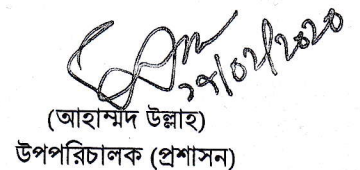 ২৭/০২/২০২০
(আহাম্মদ উল্লাহ)
উপপরিচালক (প্রশাসন)